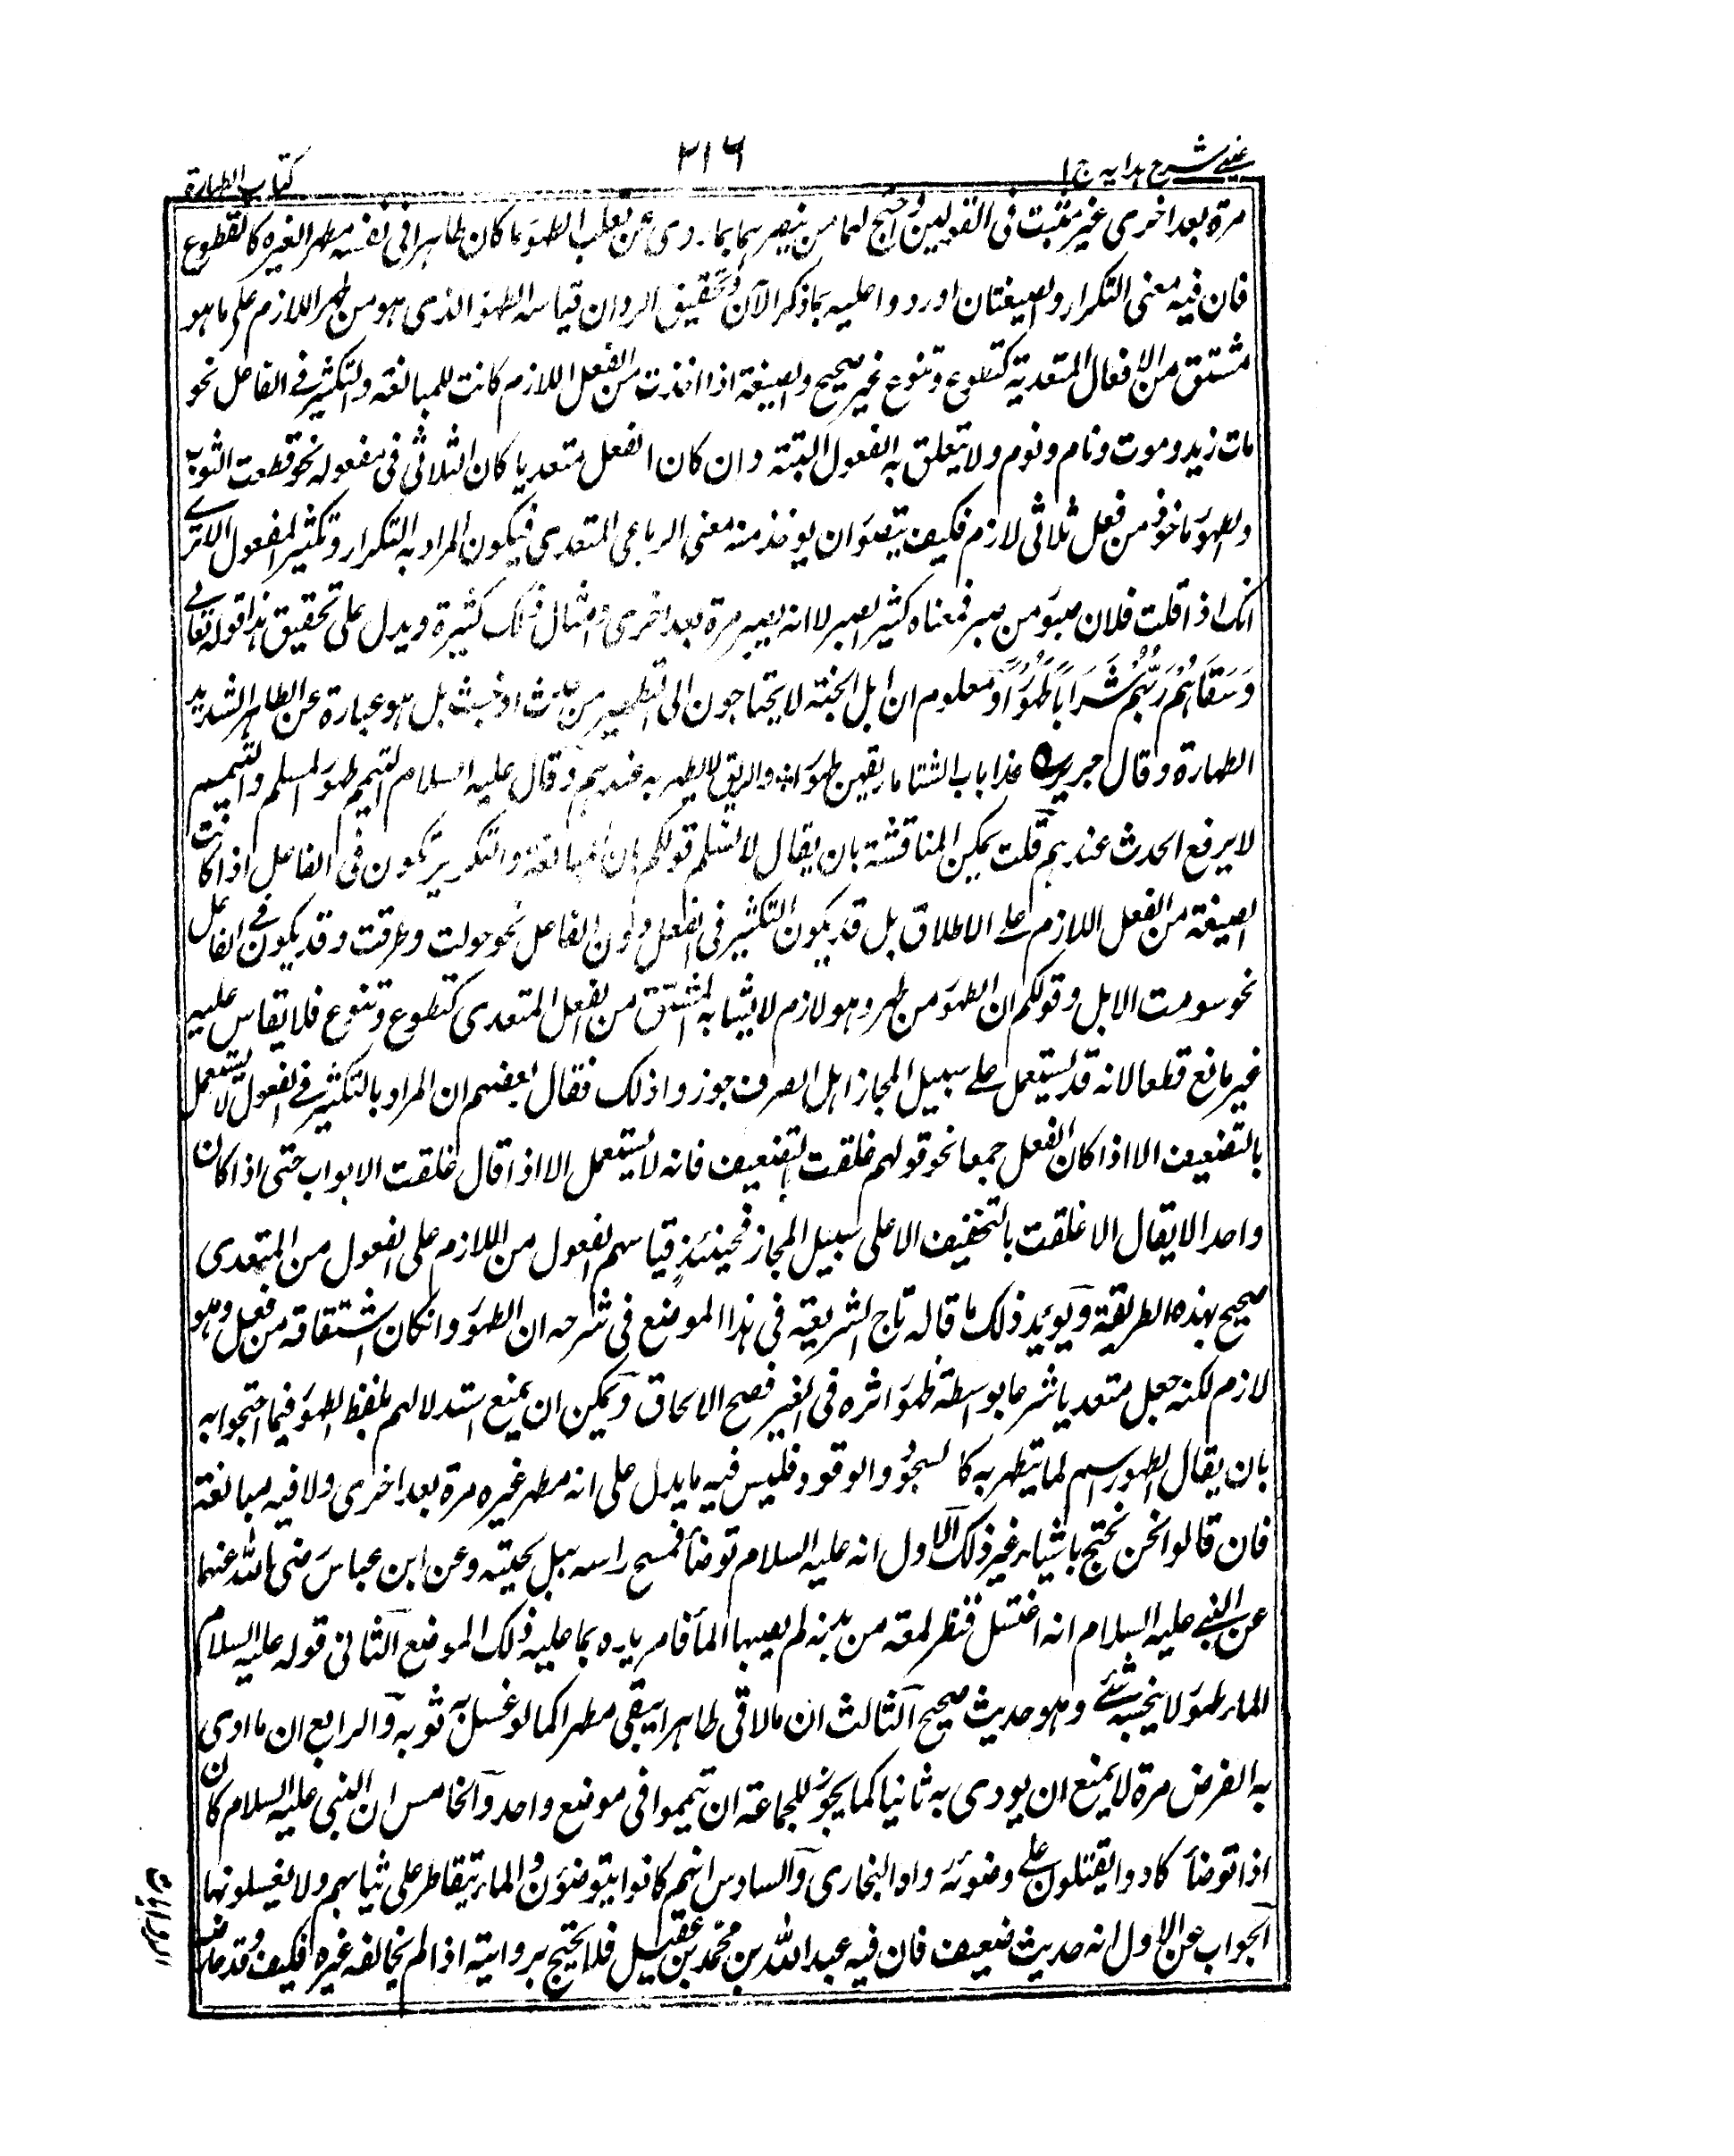 عینی شرح ہدایہ ج ا
٢١٦
کتاب الطہارة
مرة بعد اخرى غير مثبت فى القولين واحتج لهما من ينصرهما بما روى عن ثعلب الطهور ما كان طاهرا فى نفسه مطهر الغيره كالقطوع
فان فيه معنى التكرار والصيغتان اوردوا عليه بما ذكر الآن وتحقيق الرد ان قياسه الطهور الذى هو من طهر اللازم على ما هو
مشتق من الافعال المتعدية كقطوع ومنوع غير صحيح والصيغة اذا اخذت من الفعل اللازم كانت للمبالغة والتكثير فى الفاعل نحو
مات زيد وموت ونام ونوم ولا يتعلق به المفعول البتة وان كان الفعل متعديا كان الثلاثى فى مفعوله نحو قطعت الثوب
والطهور ماخوذ من فعل ثلاثى لازم فكيف يتصور ان يوخذ منه معنى الرباعى المتعدى فيكون المراد به التكرار وتكثير المفعول الا ترى
انك اذا قلت فلان صبور من صبر فمعناه كثير الصبر لا انه يصبر مرة بعد اخرى وامثال ذلك كثيرة ويدل على تحقيق هذا قوله تعالى
وَسَقَاهُمْ رَبُّهُمْ شَرَابًا طَهُوْرًا ومعلوم ان اهل الجنة لا يحتاجون الى التطهير من حدث او خبث بل هو عبارة عن الطاهر الشديد
الطهارة وقال جرير عذاب الثنايا ريقهن طهور والريق لا يطهر به عندهم وقال عليه السلام التيمم طهور المسلم والتيمم
لا يرفع الحدث عندهم قلت يمكن المناقشة بان يقال لا نسلم قولكم بان المبالغة والتكرير يكون فى الفاعل اذا كانت
الصيغة من الفعل اللازم على الاطلاق بل قد يكون التكثير فى الفعل دون الفاعل نحو حولت وطرقت وقد يكون فى الفاعل
نحو سومت الابل وقولكم ان الطهور من طهر وهو لازم لا يشابه المشتق من الفعل المتعدى كقطوع ومنوع فلا يقاس عليه
غير مانع قطعا لانه قد يستعمل على سبيل المجاز اهل الصرف جوزوا ذلك فقال بعضهم ان المراد بالتكثير فى المفعول لا يستعمل
بالتضعيف الا اذا كان الفعل جمعا نحو قولهم غلقت بالتضعيف فانه لا يستعمل الا اذا قال غلقت الابواب حتى اذا كان
واحدا لا يقال الا غلقت بالتخفيف الا على سبيل المجاز فحينئذٍ قياسهم الفعول من اللازم على الفعول من المتعدى
صحيح بهذه الطريقة ويؤيد ذلك ما قاله تاج الشريعة فى هذا الموضع فى شرحه ان الطهور وانكان اشتقاقه من فعل وهو
لازم لكنه جعل متعديا شرعا بواسطة ظهور اثره فى الغير فصح الالحاق ويمكن ان يمنع استدلالهم بلفظ الطهور فيما احتجوا به
بان يقال الطهور اسم لما يتطهر به كالسحور والوقود فليس فيه ما يدل على انه مطهر غيره مرة بعد اخرى ولا فيه مبالغة
فان قالوا نحن نحتج باشياء غير ذلك الاول انه عليه السلام توضأ فمسح راسه ببل لحيته وعن ابن عباس رضى الله عنهما
عن النبى عليه السلام انه اغتسل فنظر لمعة من بدنه لم يصبها الماء فامر يده بما عليه ذلك الموضع الثانى قوله عليه السلام
الماء طهور لا ينجسه شئ وهو حديث صحيح الثالث ان ما لاقى طاهرا يبقى مطهرا كما لو غسل به ثوبه والرابع ان ما ادى
به الفرض مرة لا يمنع ان يودى به ثانيا كما يجوز للجماعة ان تيمموا فى موضع واحد والخامس ان النبى عليه السلام كان
اذا توضأ كادوا يقتلون على وضوئه رواه البخارى والسادس انهم كانوا يتوضؤن والماء يتقاطر على ثيابهم ولا يغسلونها
الجواب عن الاول انه حديث ضعيف فان فيه عبد الله بن محمد بن عقيل فلا يحتج بروايته اذا لم يخالفه غيره فكيف وقد